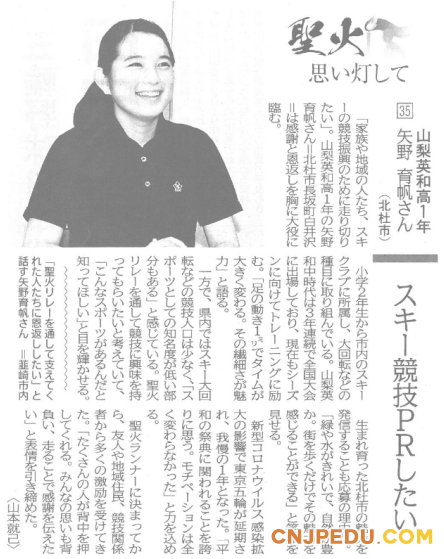 聖火
思い灯して
35
山梨英和高1年
矢野 育帆さん
(北杜市)
スキー競技PRしたい
「家族や地域の人たち、スキ
ーの競技振興のために走り切り
たい」。山梨英和高1年の矢野
育帆さん=北杜市長坂町白井沢
=は感謝と恩返しを胸に大役に
臨む。
小学2年生から市内のスキー
クラブに所属し、大回転などの
種目に取り組んでいる。山梨英
和中時代は3年連続で全国大会
に出場しており、現在もシーズ
ンに向けてトレーニングに励
む。「足の動き一つでタイムが
大きく変わる。その繊細さが魅
力」と語る。
一方で、県内ではスキー大回
転などの競技人口は少なく、「ス
ポーツとしての知名度が低い部
分もある」と感じている。聖火
リレーを通して競技に興味を持
ってもらいたいと考えていて、
「こんなスポーツがあるんだと
知ってほしい」と目を輝かせる。
「聖火リレーを通して支えてく
れた人たちに恩返ししたい」と
話す矢野育帆さん =韮崎市内
生まれ育った北杜市の魅力を
発信することも応募の理由
「緑や水がきれいで、自然が豊
か。街を歩くだけでその魅力を
感じることができる」と笑顔を
見せる。
新型コロナウイルス感染拡
大の影響で東京五輪が延期さ
れ、我慢の1年となった。「平
和の祭典に関われることを誇
りに思う。モチベーションは全
く変わらなかった」と力を込め
る。
聖火ランナーに決まってか
ら、友人や地域住民、競技関係
者から多くの激励を受けてき
た。「たくさんの人が背中を押
してくれる。みんなの思いも背
負い、走ることで感謝を伝えた
い」と表情を引き締めた。
〈山本就己〉
CNJPEDU.COM